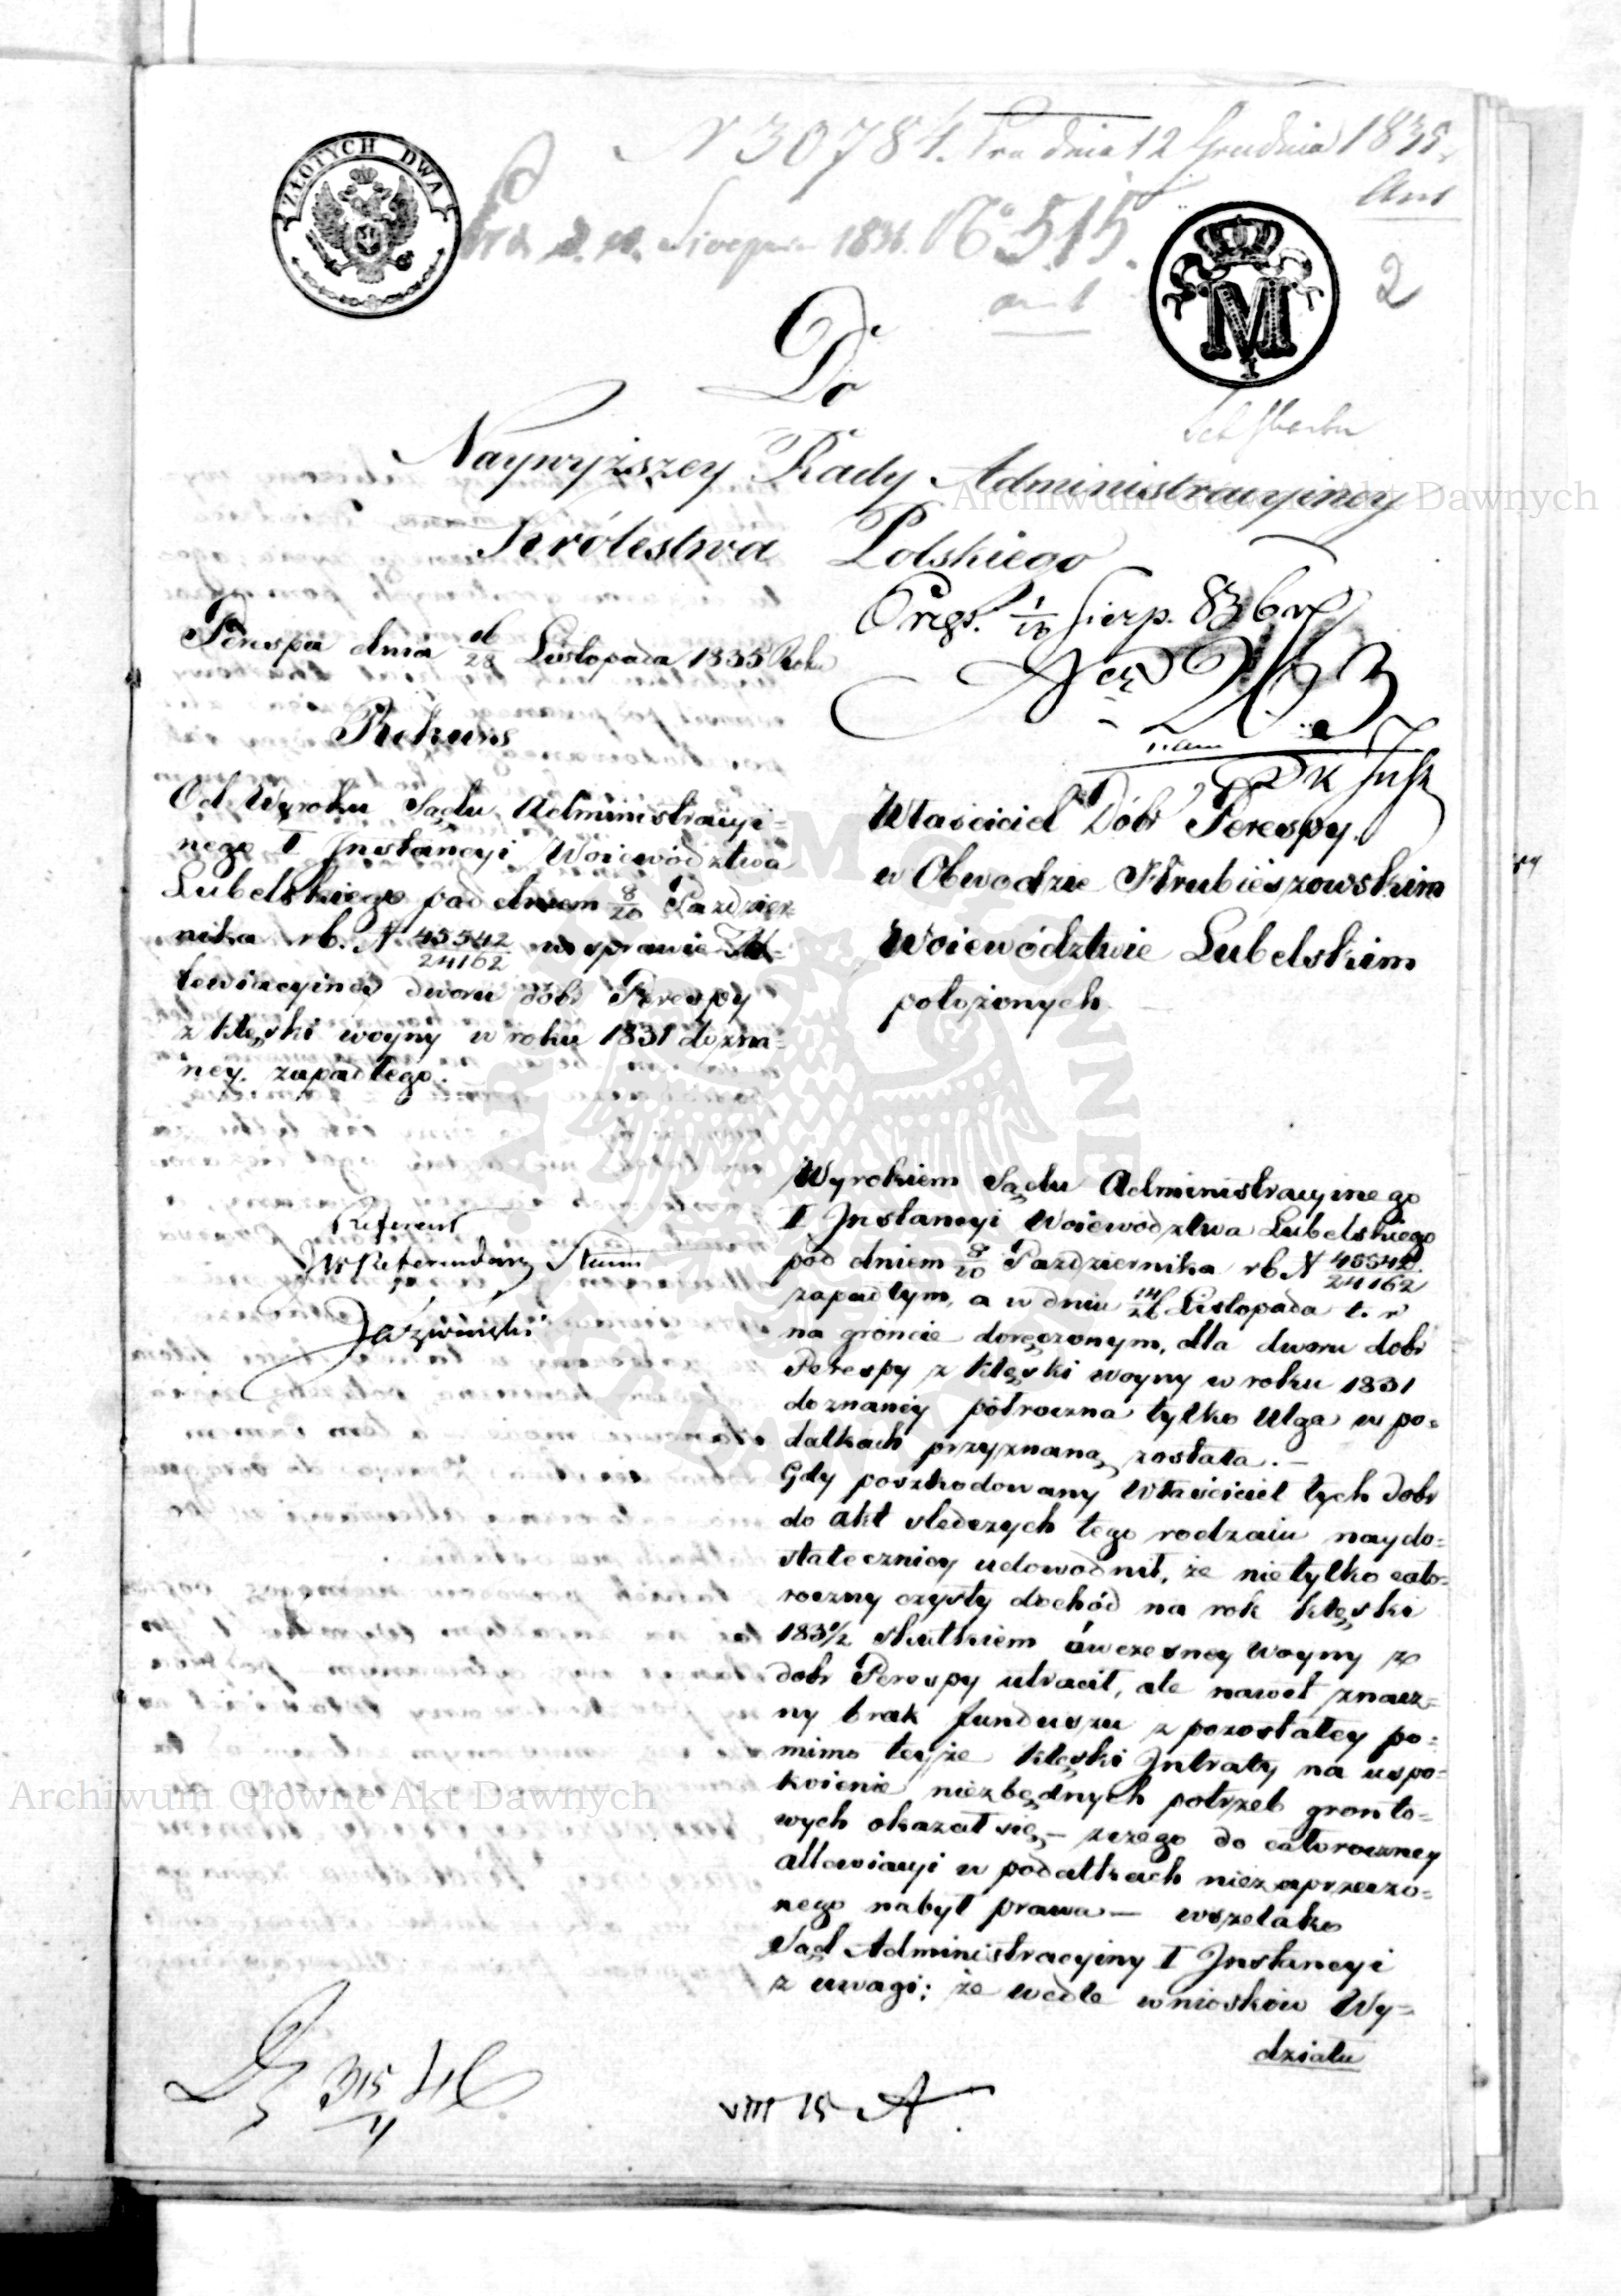 ZŁOTYCH DWA
N 30784. Pra dnia 12 Grudnia 1835.
Ant
Sierpnia 1836. No 515.
2
M
I
Do
Naywyższey Rady Administracyiney
Królestwa Polskiego
Sierp. 836
Perespa dnia 16/28 Listopada 1835 Roku
No 263
Rekurs
Od Wyroku Sądu Administracyi=
nego I Instancyi Woiewództwa
Lubelskiego pod dniem 8/20 Paździer
nika rb. N 45542/24162 w sprawie Al=
lewiacyiney dworu dóbr Perespy
z klęski woyny w roku 1831 dozna=
ney. zapadłego. —
Właściciel Dóbr Perespy
w Obwodzie Hrubieszowskim
Woiewództwie Lubelskim
położonych —
Referent
JW Referendarz Stanu
Wyrokiem Sądu Administracyinego
I Instancyi Woiewództwa Lubelskiego
pod dniem 8/20 Pazdziernika rb N 45542/24162
zapadłym, a w dniu 14/26 Listopada t. r
na gróncie doręczonym, dla dworu dóbr
Perespy z klęski woyny w roku 1831
doznaney półroczna tylko Ulga w po=
datkach przyznaną została. —
Gdy poszkodowany Właściciel tych Dobr
do akt sledczych tego rodzaiu naydo=
stateczniey udowodnił, że nietylko cało=
roczny czysty dochód na rok klęski
1831/2 skutkiem ówczesney Woyny z
dobr Perespy utracił, ale nawet znacz=
ny brak funduszu z pozostałey po=
mimo teyże klęski Intraty na uspo=
koienie niezbędnych potrzeb gronto=
wych okazał się, — zczego do całoroczney
allewiacyi w podatkach niezaprzeczo=
nego nabył prawa — wszelako
Sąd Administracyiny I Instancyi
z uwagi; że wedle wniosków Wy=
działu
VIII 15 A
Archiwum Główne Akt Dawnych
Archiwum Główne Akt Dawnych